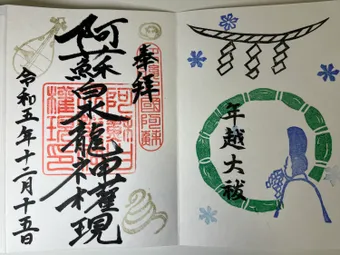 年越大祓
奉拝
阿蘇白水龍神權現
令和五年十二月十五日